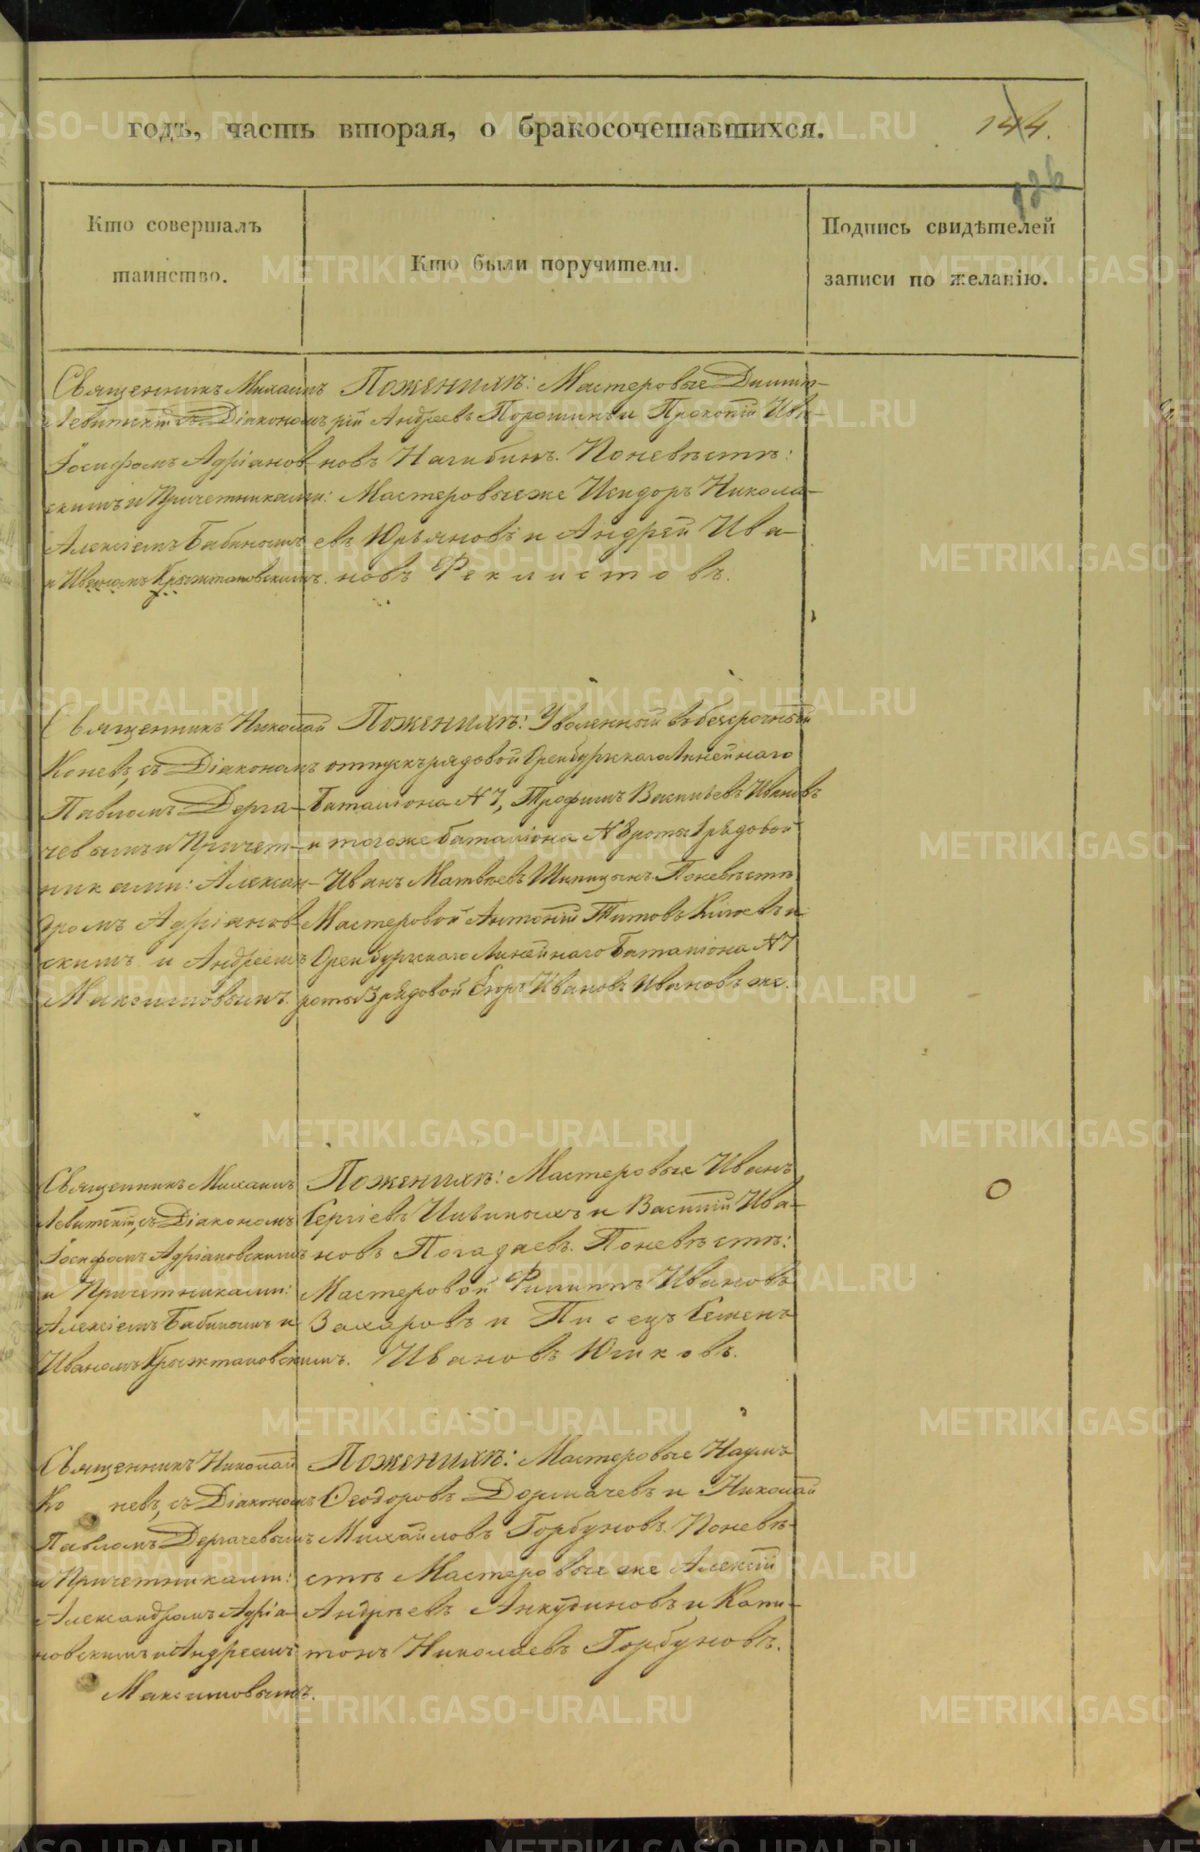 годъ, часть вторая, о бракосочетавшихся.
144.
126
Кто совершалъ
таинство.
Кто были поручители.
Подпись свидѣтелей
записи по желанію.
Священникъ Михаилъ
Левитскій съ Діакономъ
Іосифомъ Адріанов-
скимъ и Причетниками:
Алексіемъ Бабинымъ
и Иваномъ Крыжтановскимъ.
По женихѣ: Мастеровые Димит-
рій Андреевъ Порошинъ и Прокопій Ива-
новъ Нагибинъ. По невѣстѣ:
Мастеровые же Исидоръ Никола-
евъ Юрьяновъ и Андрей Ива-
новъ Феклистовъ.
Священникъ Николай
Коневъ, съ Діакономъ
Павломъ Дерга-
чевымъ и Причет-
никами: Алексан-
дромъ Адріанов-
скимъ и Андреемъ
Максимовымъ.
По женихѣ: Уволенный въ безсрочный
отпускъ рядовой Оренбургскаго Линейнаго
Баталіона № 7, Трофимъ Васильевъ Ивановъ
и того же баталіона № 8 роты 1 рядовой
Иванъ Матвѣевъ Шипицынъ. По невѣстѣ
Мастеровой Антоній Титовъ и
Оренбургскаго Линейнаго Баталіона № 7
роты 3 рядовой Егоръ Ивановъ Ивановъ же.
Священникъ Михаилъ
Левитскій, съ Діакономъ
Іосифомъ Адріановскимъ
и Причетниками:
Алексіемъ Бабинымъ и
Иваномъ Крыжтановскимъ.
По женихѣ: Мастеровые Иванъ
Сергіевъ и Василій Ива-
новъ Погадаевъ. По невѣстѣ:
Мастеровой Филиппъ Ивановъ
Захаровъ и Писецъ Семенъ
Ивановъ Юшковъ.
Священникъ Николай
Коневъ, съ Діакономъ
Павломъ Дергачевымъ
и Причетниками:
Александромъ Адріа-
новскимъ и Андреемъ
Максимовымъ.
По женихѣ: Мастеровые Наумъ
Ѳеодоровъ Дормачевъ и Николай
Михайловъ Горбуновъ. По невѣ-
стѣ Мастеровые же Алексій
Андреевъ Анкудиновъ и Капи-
тонъ Николаевъ Горбуновъ.
METRIKI.GASO-URAL.RU